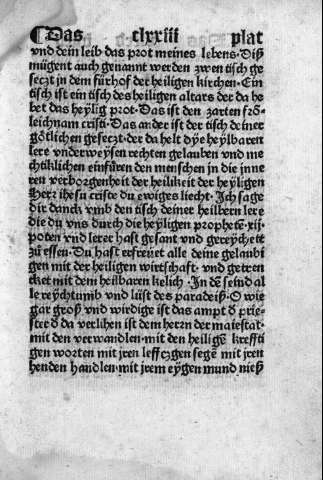 ¶Das clxxiii plat
vnd dein leib das prot meines lebens· Diß
mügent auch genannt werden zwen tisch ge
seczt in dem fürhof der heiligen kirchen· Ein
tisch ist ein tisch des heiligen altars der da he
bet das heylig prot· Das ist den zarten frō
leichnam cristi· Das ander ist der tisch deiner
götlichen gesecze· der da helt dye heylbaren
lere vnderweysen rechten gelauben vnd me
chtiklichen einfüren den menschen in die inne
ren verborgenheit der heilikeit der heyligen
Herr ihesu criste du ewiges liecht· Ich sage
dir danck vmb den tisch deiner heilbern lere
die du vns durch die heyligen prophetē· xij·
poten vnd lerer hast gesant vnd gereychett
zu essen· Du hast erfreüet alle deine gelaubi
gen mit der heiligen wirtschaft· vnd getren
cket mit dem heilbaren kelich· In dē seind al
le reychtumb vnd lüst des paradeiß· O wie
gar groß vnd wirdige ist das ampt d prie
ster d da verlihen ist dem herrn der maiestat·
mit den verwandlen· mit den heiligē kreffti
gen worten mit jren leffczgen segē mit jren
henden handlen· mit jrem eygen mund nieß